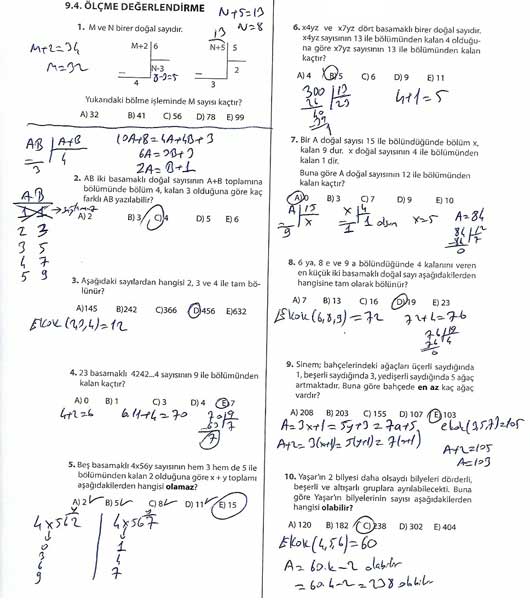 9.4. ÖLÇME DEĞERLENDİRME
N+5=13
N=8
1. M ve N birer doğal sayıdır.
M+2=34
M=32
M+2 6
N-3
4
8-3=5
13
N+5 5
2
3
Yukarıdaki bölme işleminde M sayısı kaçtır?
A) 32 B) 41 C) 56 D) 78 E) 99
AB A+B
4
3
10A+B=4A+4B+3
6A=3B+3
2A=B+1
2. AB iki basamaklı doğal sayısının A+B toplamına
bölümünde bölüm 4, kalan 3 olduğuna göre kaç
farklı AB yazılabilir?
A) 2 B) 3 C) 4 D) 5 E) 6
A B
1 1
2 3
3 5
4 7
5 9
3. Aşağıdaki sayılardan hangisi 2, 3 ve 4 ile tam bö-
lünür?
A)145 B)242 C)366 D)456 E)632
EKOK(2,3,4)=12
4. 23 basamaklı 4242...4 sayısının 9 ile bölümünden
kalan kaçtır?
A) 0 B) 1 C) 3 D) 4 E) 7
4+2=6 6.11+4=70
70 9
63 7
7
5. Beş basamaklı 4x56y sayısının hem 3 hem de 5 ile
bölümünden kalan 2 olduğuna göre x + y toplamı
aşağıdakilerden hangisi olamaz?
A) 2 B) 5 C) 8 D) 11 E) 15
4x562 4x567
0 1
3 4
6 7
9
6. x4yz ve x7yz dört basamaklı birer doğal sayıdır.
x4yz sayısının 13 ile bölümünden kalan 4 olduğu-
na göre x7yz sayısının 13 ile bölümünden kalan
kaçtır?
A) 4 B) 5 C) 6 D) 9 E) 11
300 13
26 23
40
39
1
4+1=5
7. Bir A doğal sayısı 15 ile bölündüğünde bölüm x,
kalan 9 dur. x doğal sayısının 4 ile bölümünden
kalan 1 dir.
Buna göre A doğal sayısının 12 ile bölümünden
kalan kaçtır?
A) 0 B) 3 C) 7 D) 9 E) 10
A 15
x
9
x 4
1
1 olsun x=5 A=84
84 12
84 7
0
8. 6 ya, 8 e ve 9 a bölündüğünde 4 kalanını veren
en küçük iki basamaklı doğal sayı aşağıdakilerden
hangisine tam olarak bölünür?
A) 7 B) 13 C) 16 D) 19 E) 23
EKOK(6,8,9)=72 72+4=76
76 19
76 4
0
9. Sinem; bahçelerindeki ağaçları üçerli saydığında
1, beşerli saydığında 3, yedişerli saydığında 5 ağaç
artmaktadır. Buna göre bahçede en az kaç ağaç
vardır?
A) 208 B) 203 C) 155 D) 107 E) 103
A=3x+1=5y+3=7z+5 ekok(3,5,7)=105
A+2=3(x+1)=5(y+1)=7(z+1)
A+2=105
A=103
10. Yaşar'ın 2 bilyesi daha olsaydı bilyeleri dörderli,
beşerli ve altışarlı gruplara ayrılabilecekti. Buna
göre Yaşar'ın bilyelerinin sayısı aşağıdakilerden
hangisi olabilir?
A) 120 B) 182 C) 238 D) 302 E) 404
EKOK(4,5,6)=60
A=60.k-2 olabilir
=60.4-2=238 olabilir